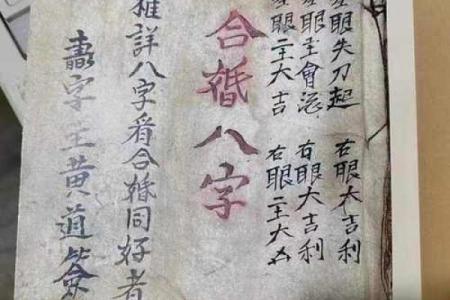 左眼失刀起 右眼大吉利
左眼主會 右眼大吉利
左眼主大吉 右眼主大凶
合婚八字
推詳八字看合婚同好者
字主黃道簽